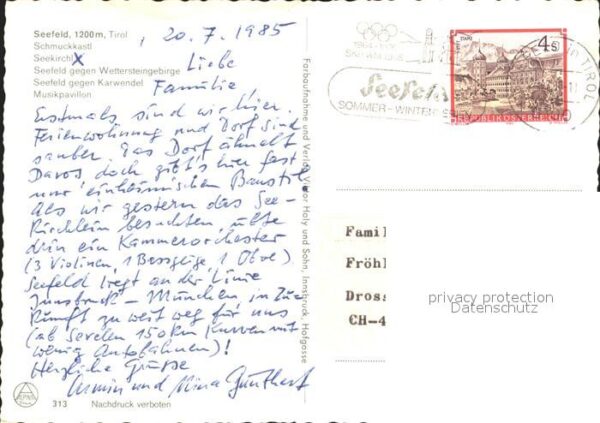 Seefeld, 1200m, Tirol
Schmuckkastl
Seekirchl
Seefeld gegen Wettersteingebirge
Seefeld gegen Karwendel
Musikpavillon
, 20.7.1985
Liebe
Familie!
Erstmals sind wir hier.
Ferienwohnung und Dorf sind
sauber. Das Dorf ähnelt
Davos doch gibt's hier fast
nur einheimischen Baustil.
Als wir gestern das See-
Kirchlein besuchten, übte
drin ein Kammerorchester
(3 Violinen, 1 Bassgeige, 1 Oboe)
Seefeld liegt an der Linie
Innsbruck - München, in Zu-
kunft zu weit weg für uns
(ab Sevelen 150 km Kurven mit
wenig Autobahnen)!
Herzliche Grüsse
Armin und Nina Gunthart
313 Nachdruck verboten
Farbaufnahme und Verlag Viktor Holy und Sohn, Innsbruck, Hofgasse
Seefeld
SOMMER - WINTER
TIROL
STAMS
4 S
REPUBLIK ÖSTERREICH
Famil
Fröhl
Dross
CH-4
privacy protection
Datenschutz